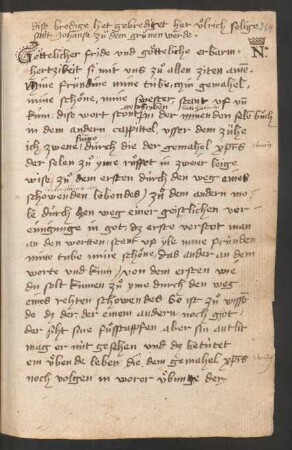 disz bredige het gebrediget her ůlrich selige
sant Johansz zů dem grůnen werde
Göttelicher fride und göttliche erbarm
hertzikeit si mit uns zů allen ziten ame N.
Mine frundine mine tube, min gemahel,
mine schöne, mine swester stant uf vn̄
kum: disz wort stont in der minnenden sele bůch
in dem andern cappittel, usser dem zühe
ich zwene, durch die der gemahel xps
der selen zů yme rüfset in zweier leige
wise, zů dem ersten durch den weg eines
schowenden lebendes, zů dem andern mo
le durch den weg einer geistlichen ver
einigunge in got, dz erste verstot man
an den worten, stant uf yle mine frúnden
mine tube mine schöne, das ander an dem
worte und kum, von dem ersten wie
du solt kummen zů yme durch den weg
eines rehten schowendes So ist zů wiss
de dz der der einem andern noch got,
der siht sine fůsstapffen aber sin antlit
mag er nit gesehen und dz betútet
ein übende leben die dem gemahel xps
noch volgen in worer übunge der